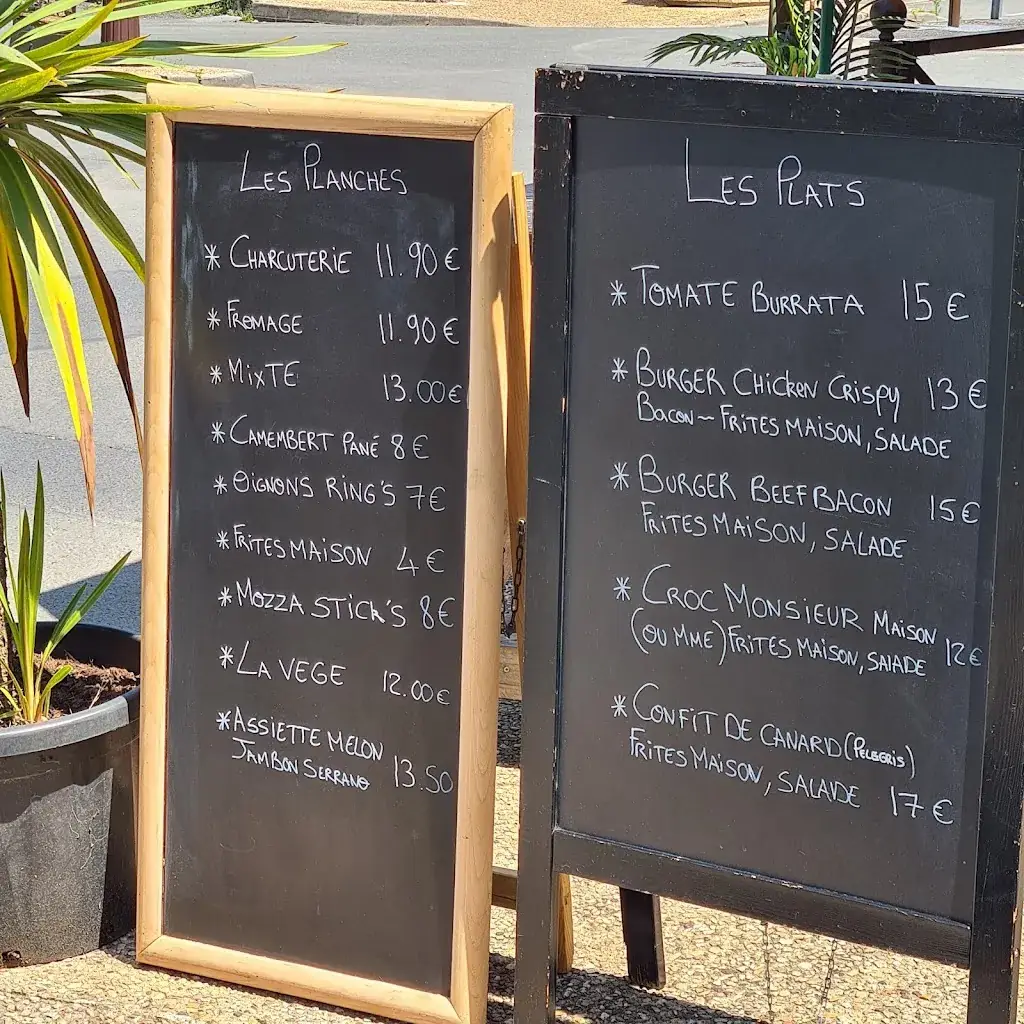 LES PLANCHES
* CHARCUTERIE 11.90 €
* FROMAGE 11.90 €
* MIXTE 13.00 €
* CAMEMBERT PANÉ 8 €
* OIGNONS RING'S 7 €
* FRITES MAISON 4 €
* MOZZA STICK'S 8 €
* LA VEGE 12.00 €
* ASSIETTE MELON
JAMBON SERRANO 13.50
LES PLATS
* TOMATE BURRATA 15 €
* BURGER CHICKEN CRISPY 13 €
BACON - FRITES MAISON, SALADE
* BURGER BEEF BACON 15 €
FRITES MAISON, SALADE
* CROC MONSIEUR MAISON
(OU MME) FRITES MAISON, SALADE 12 €
* CONFIT DE CANARD
FRITES MAISON, SALADE 17 €